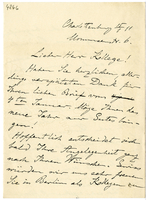 Charlottenburg
Mommsenstr. 6.
Lieber Herr Kollege!
Haben Sie herzlichen, aller-
dings verspäteten Dank für
Ihren lieben Brief vom
4ten Januar. Möge Ihnen das
neue Jahr nur Gutes brin-
gen!
Hoffentlich entscheidet sich
bald Ihre Angelegenheit ganz
nach Ihren Wünschen. Wir
würden wir uns alle freuen
Sie in Berlin als Kollegen zu